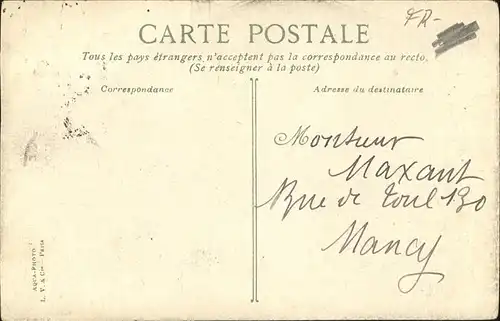 FR-
CARTE POSTALE
Tous les pays étrangers n'acceptent pas la correspondance au recto.
(Se renseigner à la poste)
Correspondance
Adresse du destinataire
Monsieur
Maxant
Rue de Toul 130
Nancy
AQUA-PHOTO
L. V. & Cie - Paris